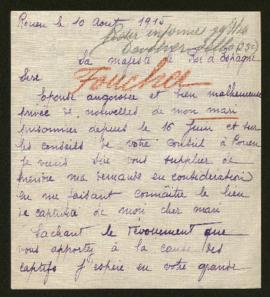 Rouen le 10 Aout 1915
Sa majesté le Roi d'Espagne
Foucher
Sire
Epouse angoissée et bien malheureuse
privée de nouvelles de mon mari
prisonnier depuis le 16 Juin et sur
les conseils de votre consul à Rouen
je viens Sire vous supplier de
prendre ma demande en considération
en me faisant connaître le lieu
de captivité de mon cher mari
Sachant le dévouement que
vous apportez à la cause des
captifs j'espère en votre grande